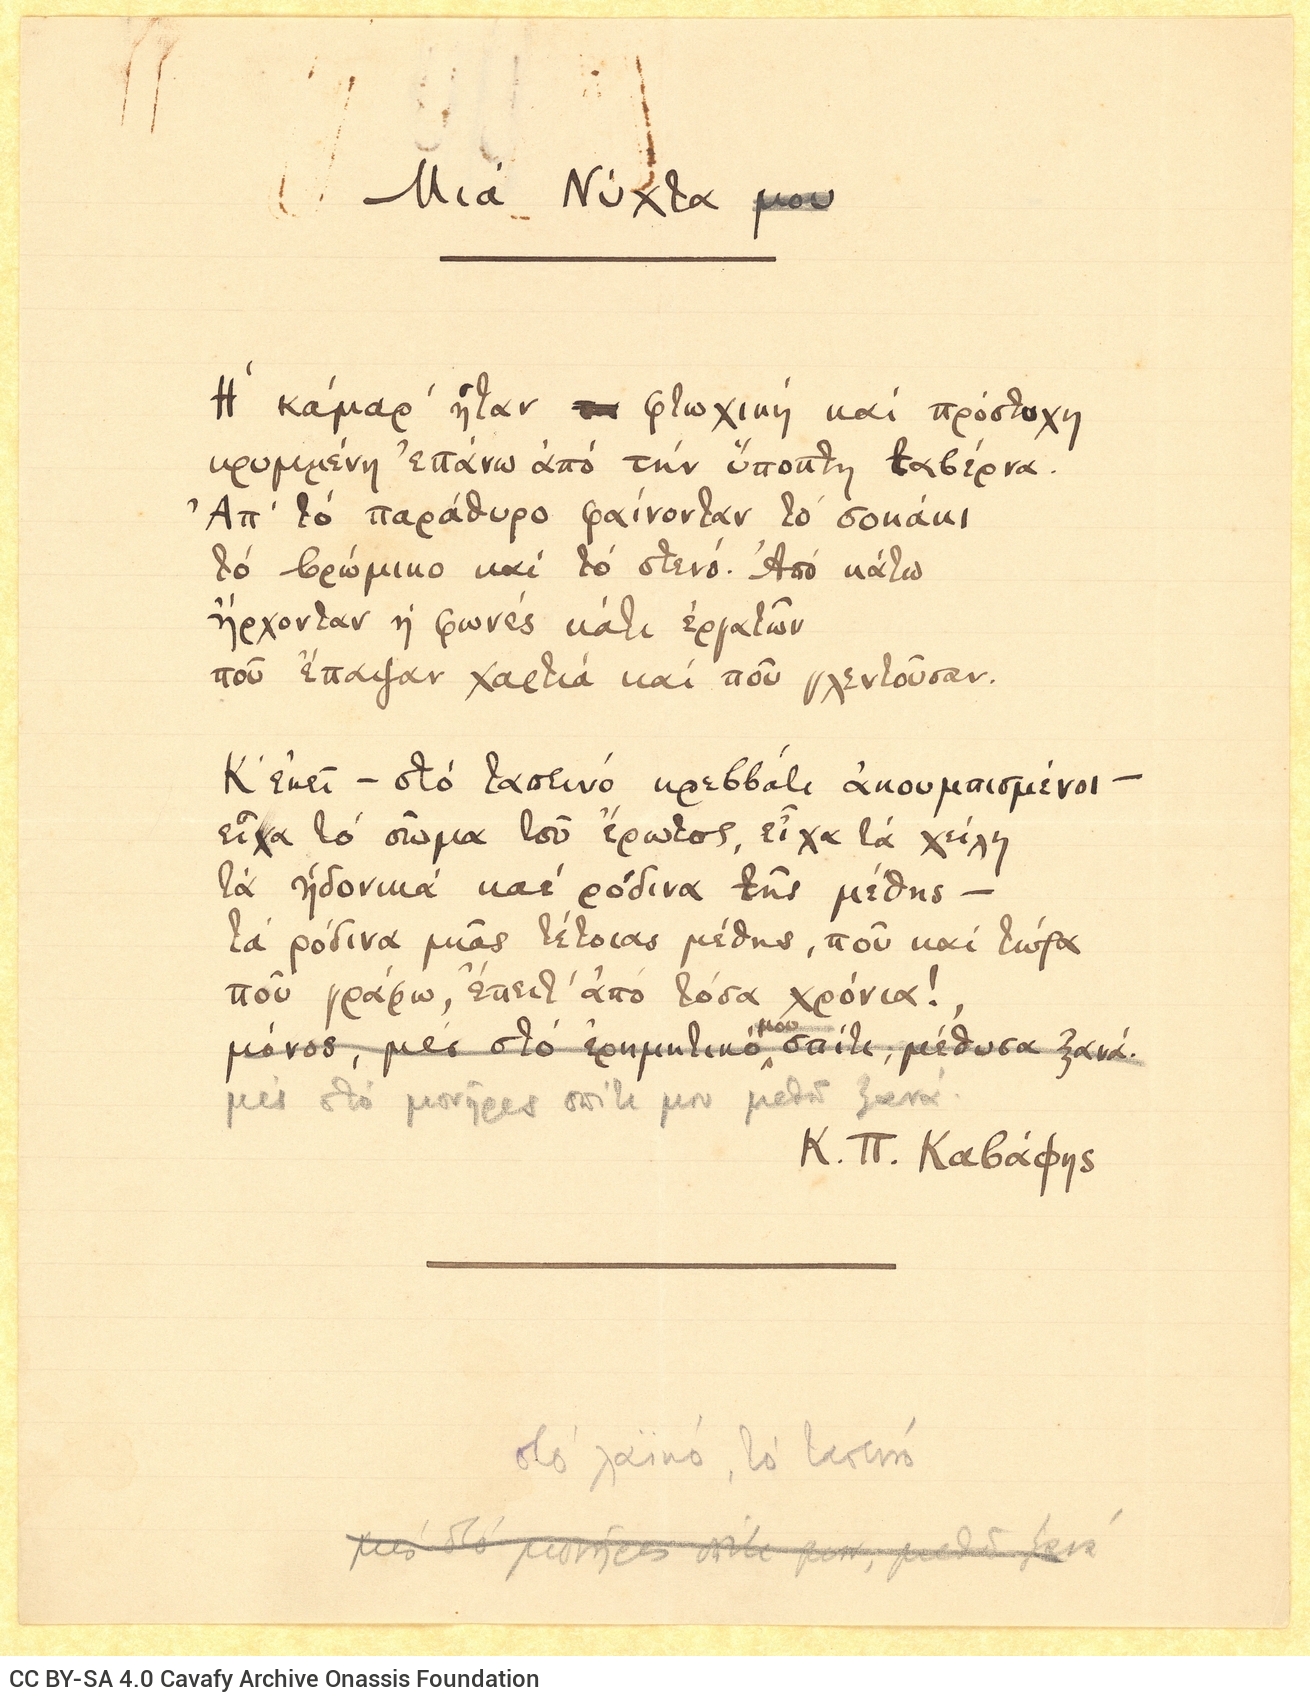 Μιά Νύχτα μου
Ἡ κάμαρ' ἦταν φτωχική καί πρόστυχη
κρυμμένη ἐπάνω ἀπό τήν ὕποπτη ταβέρνα.
Ἀπ' τό παράθυρο φαίνονταν τό σοκάκι
τό βρώμικο καί τό στενό. Ἀπό κάτω
ἤρχονταν ἡ φωνές κάτι ἐργατῶν
ποῦ ἔπαιζαν χαρτιά καί ποῦ γλεντοῦσαν.
Κ' ἐκεῖ – στό ταπεινό κρεββάτι ἀκουμπισμένοι –
εἶχα τό σῶμα τοῦ ἔρωτος, εἶχα τά χείλη
τά ἡδονικά καί ρόδινα τῆς μέθης –
τά ρόδινα μιᾶς τέτοιας μέθης, ποῦ καί τώρα
ποῦ γράφω, ἔπειτ' ἀπό τόσα χρόνια!,
μόνος, μές στό ἐρημητικό μου σπίτι, μέθυσα ξανά.
μές στό μονῆρες σπίτι μου μεθῶ ξανά.
Κ. Π. Καβάφης
στό λαϊκό, τό ταπεινό
μές στό μονῆρες σπίτι μου, μεθῶ ξανά
CC BY-SA 4.0 Cavafy Archive Onassis Foundation